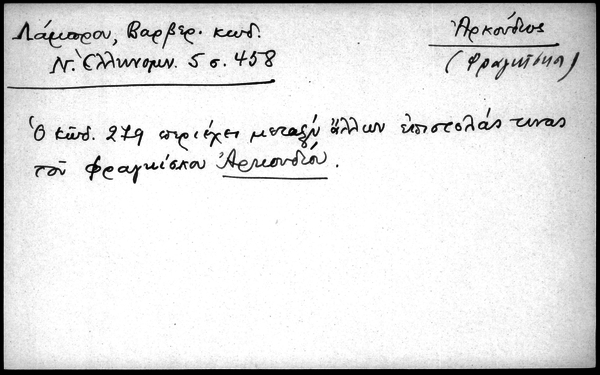 Λάμπρου, Βαρβερ. κωδ.
Ν. Ἑλληνομν. 5 σ. 458
Ἀρκούδιος
(Φραγκίσκος)
Ὁ κῶδ. 279 περιέχει μεταξὺ ἄλλων ἐπιστολάς τινας
τοῦ Φραγκίσκου Ἀρκουδίου.